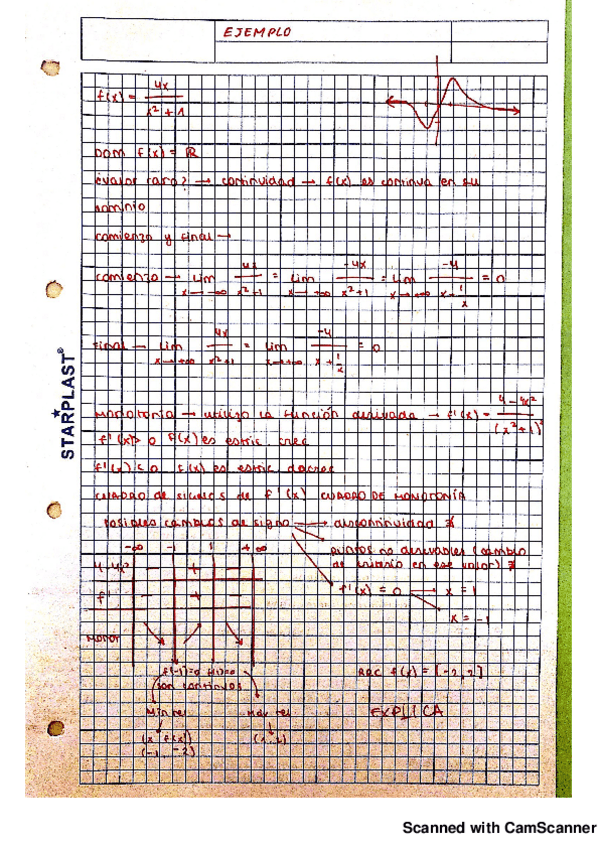 EJEMPLO
f(x) = 4x / x² + 1
Dom f(x) = ℝ
evalor raro? → continuidad → f(x) es continua en su
dominio
comienzo y final →
comienzo → lim x→-∞ 4x / x²+1 = lim x→+∞ -4x / x²+1 = lim x→+∞ -4 / x+1/x = 0
Final → lim x→+∞ 4x / x²+1 = lim x→+∞ -4 / x+1/x = 0
Monotonía → utilizo la función derivada → f'(x) = 4-4x² / (x²+1)²
f'(x)>0 f(x) es estric. crec
f'(x)<0 f(x) es estric decrec
CUADRO de signos de f'(x) CUADRO DE MONOTONÍA
Posibles cambios de signo → discontinuidad ∄
puntos no derivables (cambio
de criterio en ese valor) ∄
f'(x) = 0 → x = 1
x = -1
-∞ -1 1 +∞
4-4x² - + -
f' - + -
Monot
f'(-1)=0 f'(1)=0
son continuos
Min rel Max rel
(x, f(x)) (1, 2)
(-1, -2)
REC f(x) = [-2, 2]
EXPLICA
STARPLAST®
Scanned with CamScanner